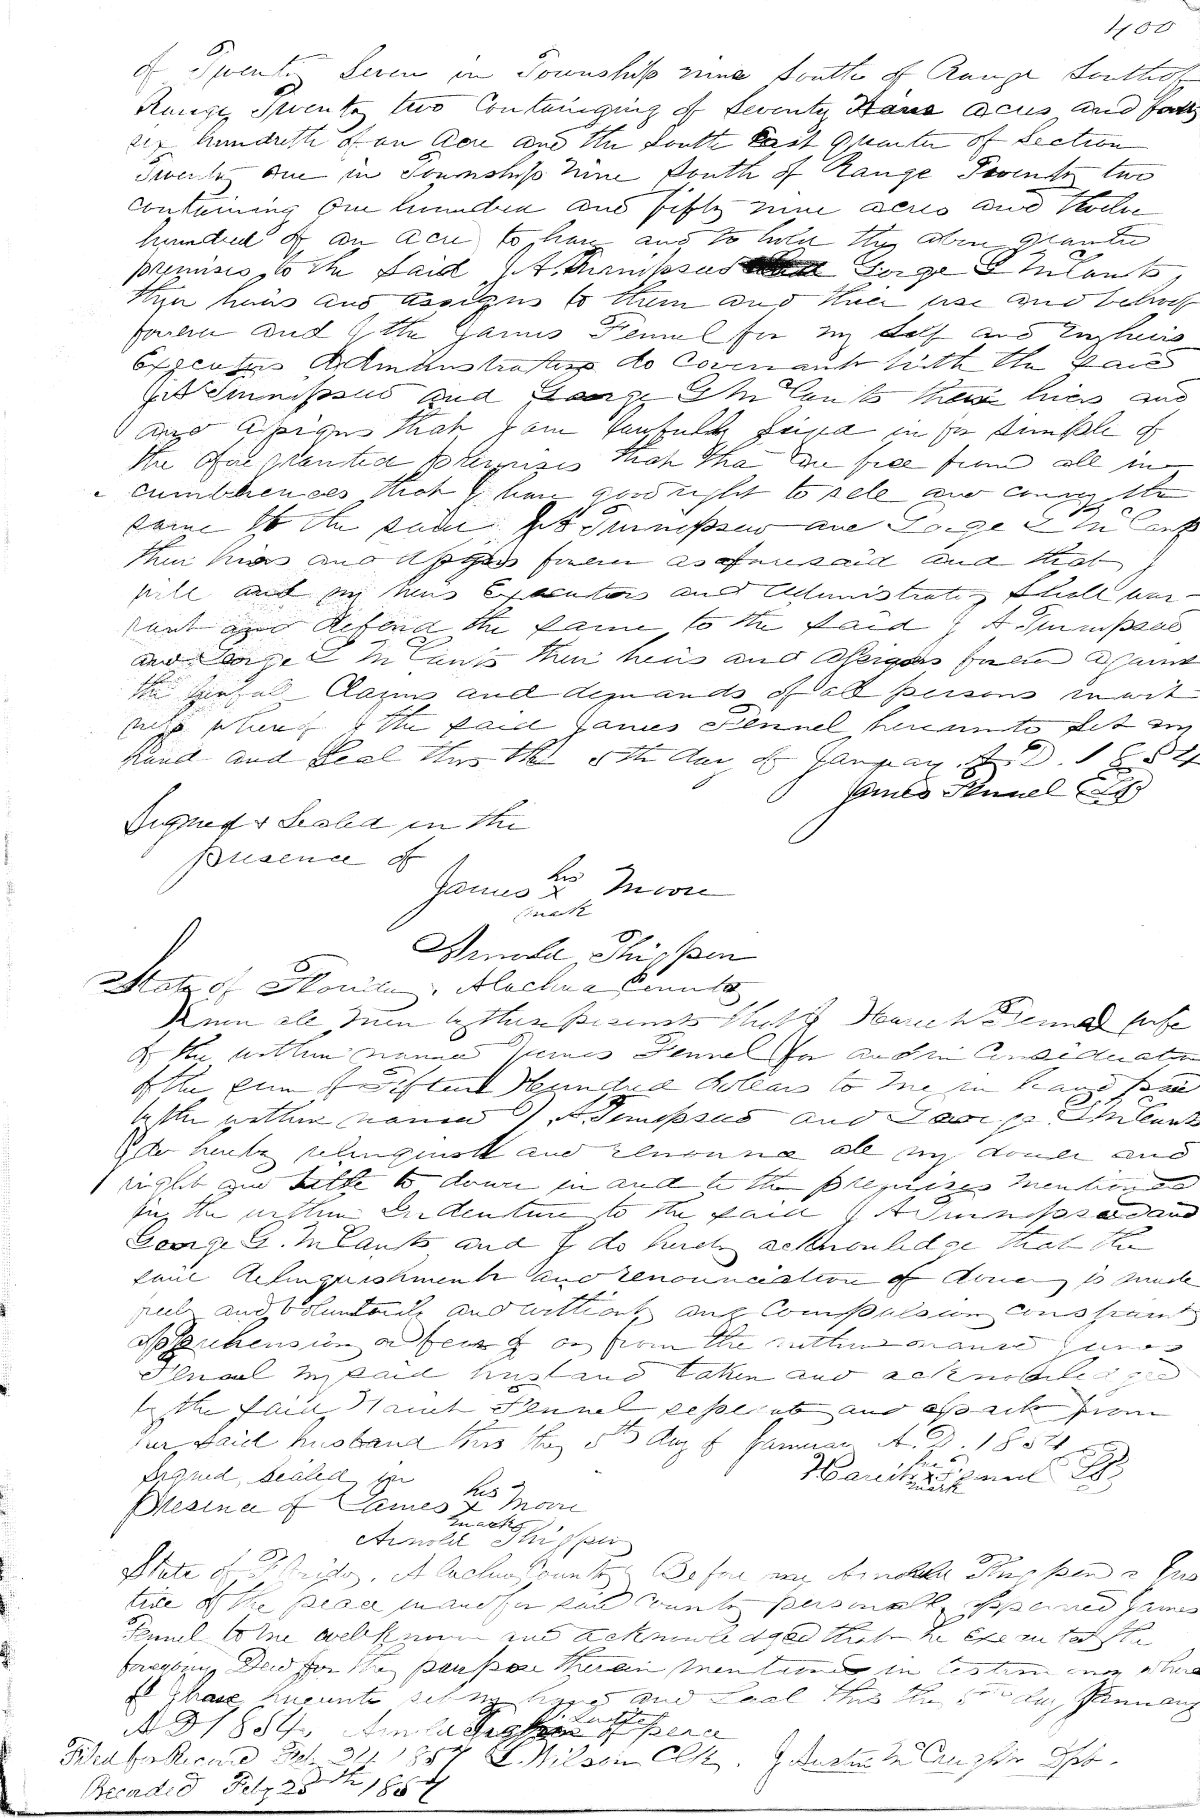 400
of Twenty Seven in Township nine South of Range South of
Range Twenty two Containging of Seventy Nine acres and forty
six hundreth of an Acre and the South East quarter of Section
Twenty one in Township Nine South of Range Twenty two
containing One hundred and fifty nine acres and twelve
hundred of an acre to have and to hold the above granted
premises to the Said J. A. Turnipseed George G McCants,
their heirs and assigns to them and thier use and behoof
forever and I the James Fennel for my Self and my heirs
Executors Administrators do Covenant with the said
J A Turnipseed and George G McCants their hiers and
and assigns that I am lawfully Seized in fee simple of
the afore granted premises that tha are free from all in
cumbrences that I have good right to sele and convey the
same to the said J A Turnipseed and George G McCants
their hiers and assigns forever as aforesaid and that I
will and my heirs Executors and Administrators Shall war-
rant and defend the same to the Said J A Turnipseed
and George G McCants their heirs and assigns forever against
the lawfull Claims and demands of all persons in wit
ness whereof I the said James Fennel hereunto Set my
hand and Seal this the 5th day of January A.D. 1854
James Fennel LS
Signed & Sealed in the
presence of
James his x mark Moore
Arnold Thigpen
State of Florida, Alachua County
Know all men by these presents that I Hariet Fennel wife
of the within named James Fennel for and in Consideration
of the sum of Fifteen Hundred dollars to me in hand paid
by the within named J. A. Turnipseed and George G McCants
I do hereby relinquish and renounce all my dower and
right and title to dower in and to the premises mentioned
in the within Indenture to the said J A Turnipseed and
George G. McCants and I do hereby acknowledge that the
said relinquishment and renounciation of dower is made
freely and voluntarily and without any Compulsion constraint
apprehension or fear of or from the within named James
Fennel my said husband taken and acknowledged
by the said Hariet Fennel seperate and apart from
her Said husband this they 5th day of January A.D. 1854
Signed, Sealed in Hariet her x mark Fennel LS
Presence of James his x mark Moore
Arnold Thigpen
State of Florida, Alachua County Before me Arnold Thigpen a Jus
tice of the peace in and for said County personally appeared James
Fennel to me well known and acknowledged that he executed the
foregoing Deed for they purpose therein mentioned in testimony where
of I have hereunto set my hand and Seal this the 5th day January
A D 1854, Arnold Thigpen Justice of peace
Filed for Record Feb 24 1857 L. Wilson Clk.
Recorded Feby 28th 1857